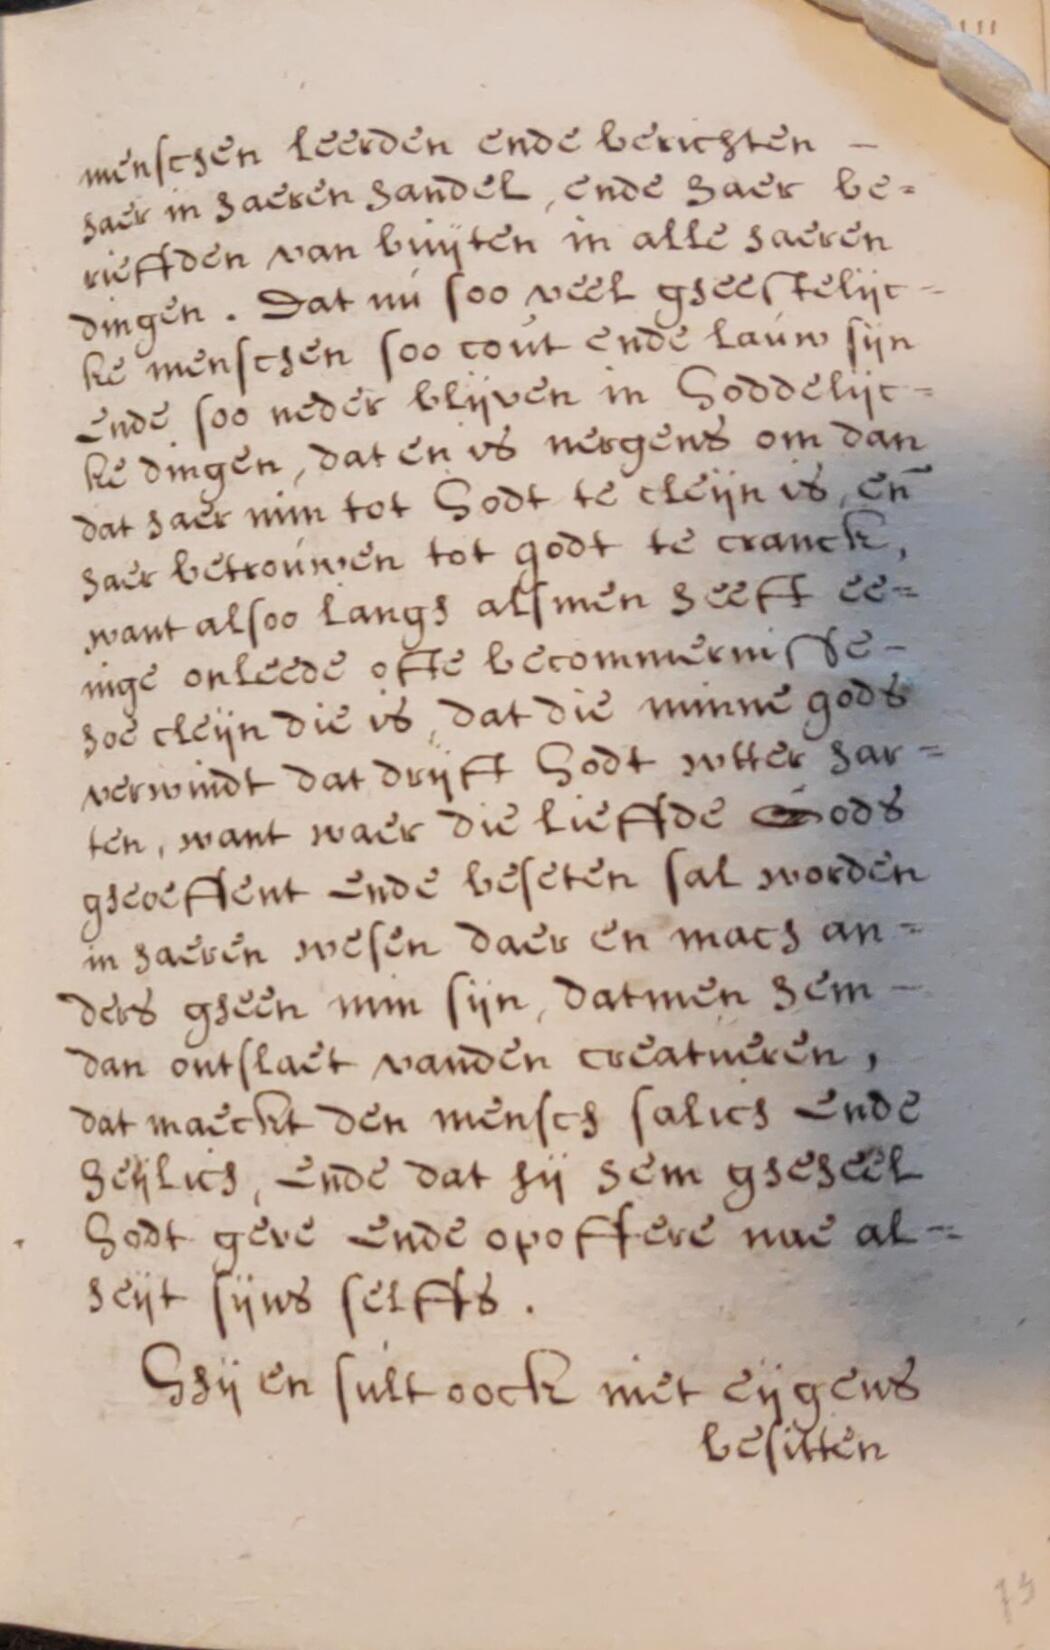 menschen leerden ende berichten –
haer in haeren handel, ende haer be=
rieffden van buijten in alle haeren
dingen. Dat nú soo veel gheestelijc=
ke menschen soo cout ende lauw sijn
Ende soo neder blijven in Goddelijc=
ke dingen, dat en is nergens om dan
dat haer min tot Godt te cleijn is, en̄
haer betrouwen tot godt te cranck,
want alsoo langh alsmen heeft ee=
nige onleede ofte becommernisse –
hoe cleijn die is, dat die minne gods
verwindt dat drijft Godt wtter har=
ten, want waer die lieffde Gods
gheoeffent Ende beseten sal worden
in haeren wesen daer en mach an=
ders gheen min sijn, datmen hem –
dan ontslaet vanden creatueren,
dat maeckt den mensch salich Ende
heijlich, Ende dat hij hem gheheel
Godt geve Ende opoffere nae al=
heijt sijns selffs.
Ghij en sult oock niet eijgens
besitten
75